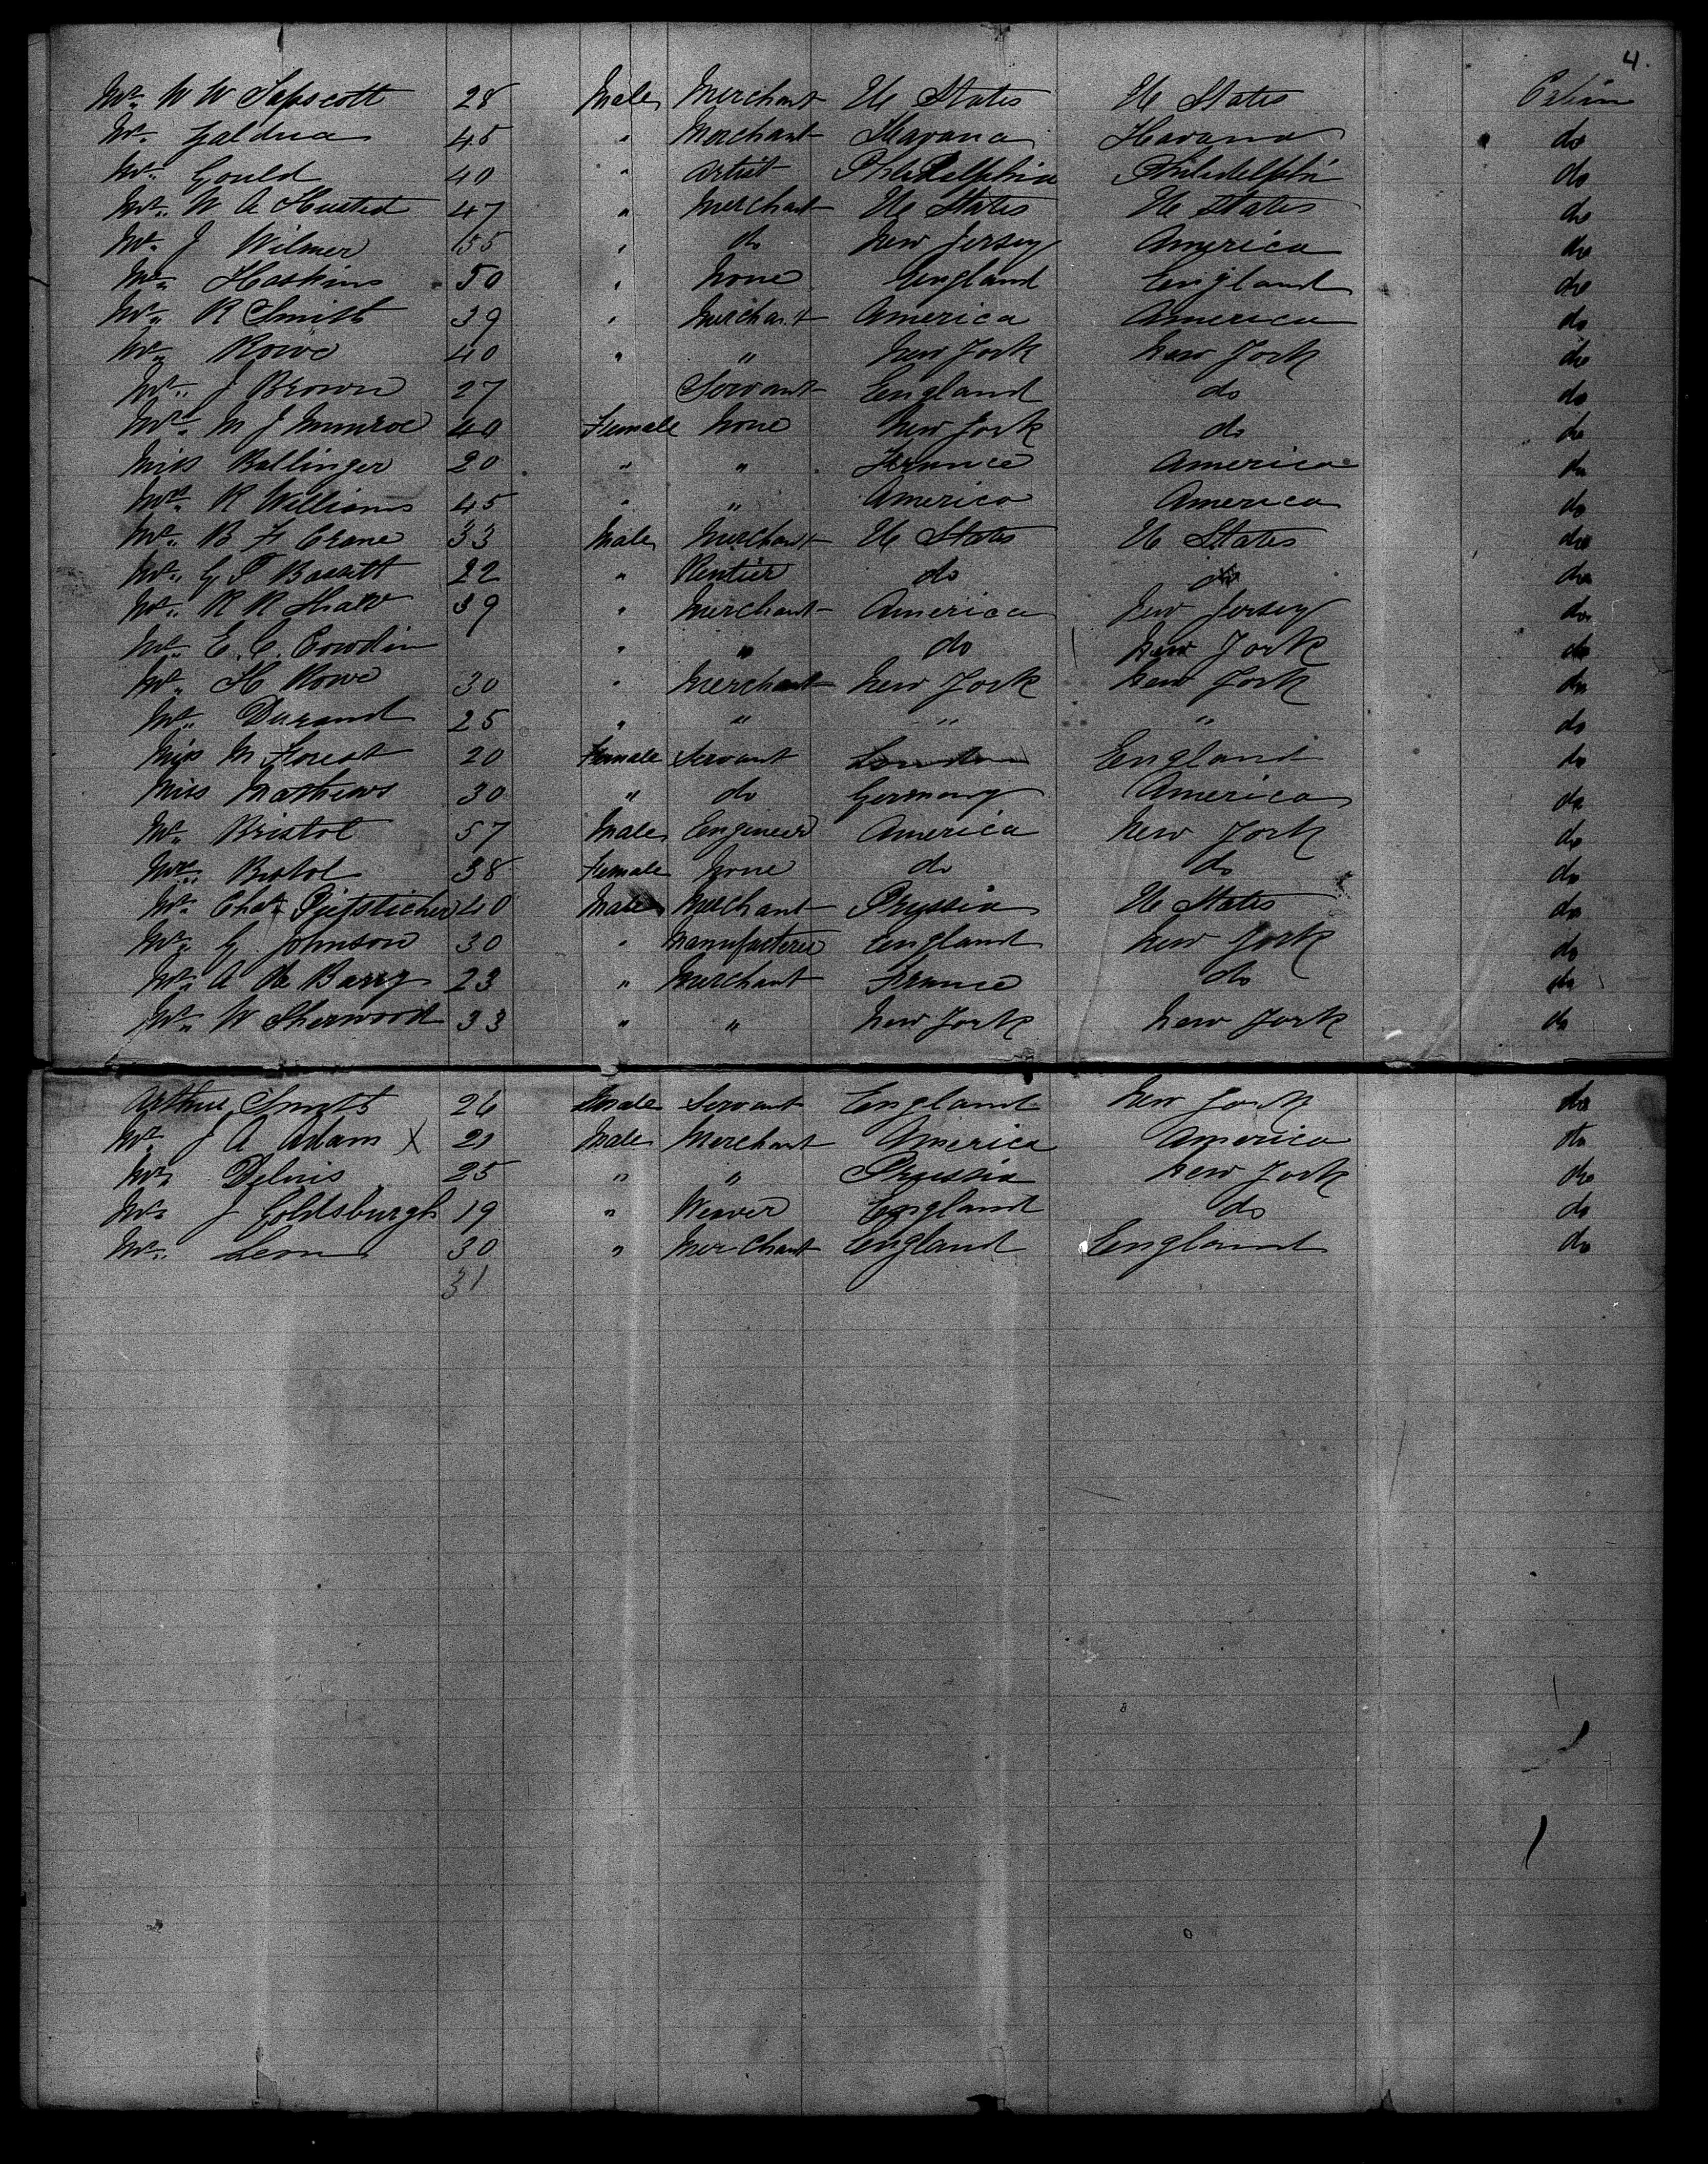 4.
Mr. W W Tapscott 28 Male Merchant U States U States Cabin
Mr. Galdua 45 " Merchant Havana Havana do
Mr. Gould 40 " Artist Philadelphia Philadelphi do
Mr. W A Husted 47 " Merchant U States U States do
Mr. J Wilmer 55 " do New Jersey America do
Mr. Hoskins 50 " None England England do
Mr. R Smith 39 " Merchant America America do
Mr. Rowe 40 " " New York New York do
Mr. J Brown 27 Servant England do do
Mrs. M J Munroe 40 Female None New York do do
Miss Ballinger 20 " " France America do
Mrs. R Williams 45 " " America America do
Mr. B F Crane 33 Male Merchant U States U States do
Mr. G T Bassett 22 " Rentier do do do
Mr. R R Shaw 39 " Merchant America New Jersey do
Mr. E. C. Cowdin " " do New York do
Mr. H Rowe 30 " Merchant New York New York do
Mr. Durand 25 " " " " do
Miss M Forest 20 Female Servant London England do
Miss Mathews 30 " do Germany America do
Mr. Bristol 57 Male Engineer America New York do
Mrs. Bristol 38 Female None do do do
Mr. Chas. 40 Male Merchant Prussia U States do
Mr. G Johnson 30 " Manufacturer England New York do
Mr. A De Bary 23 " Merchant France do do
Mr. W Sherwood 33 " " New York New York do
Arthur Smith 26 Male Servant England New York do
Mr. J A Adam X 21 Male Merchant America America do
Mr. 25 " " Prussia New York do
Mr. J Goldsburgh 19 " Weaver England do do
Mr. Leon 30 " Merchant England England do
31